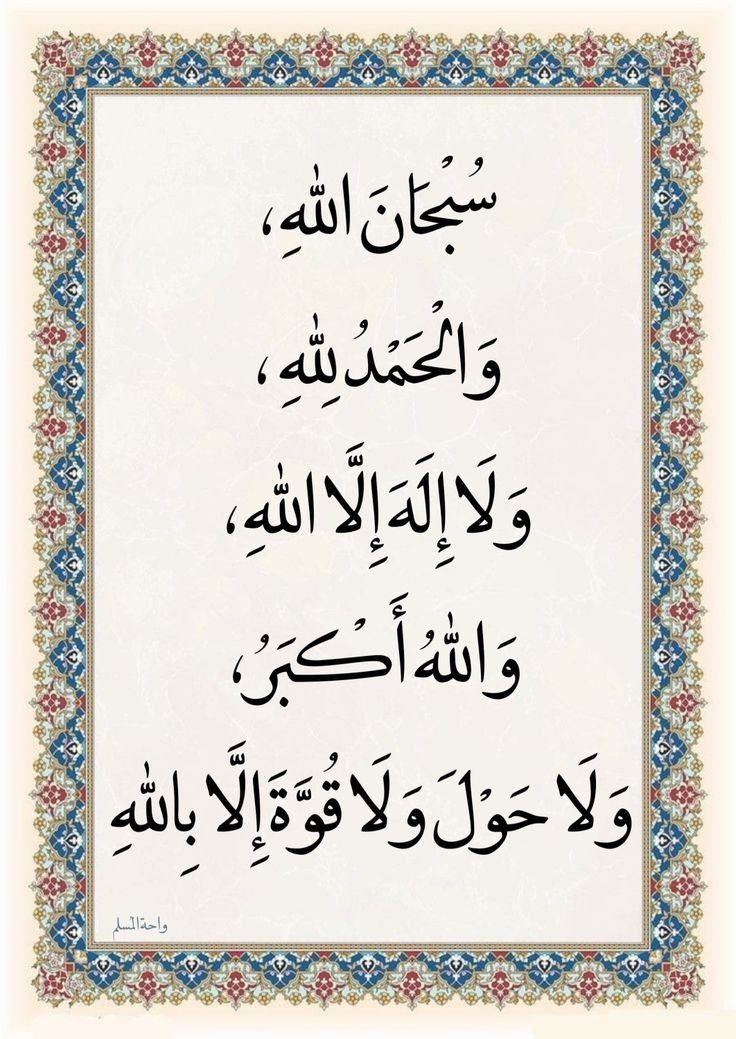 سُبْحَانَ اللهِ،
وَالْحَمْدُ لِلهِ،
وَلَا إِلَهَ إِلَّا اللهِ،
وَاللهُ أَكْبَرُ،
وَلَا حَوْلَ وَلَا قُوَّةَ إِلَّا بِاللهِ
واحة المسلم